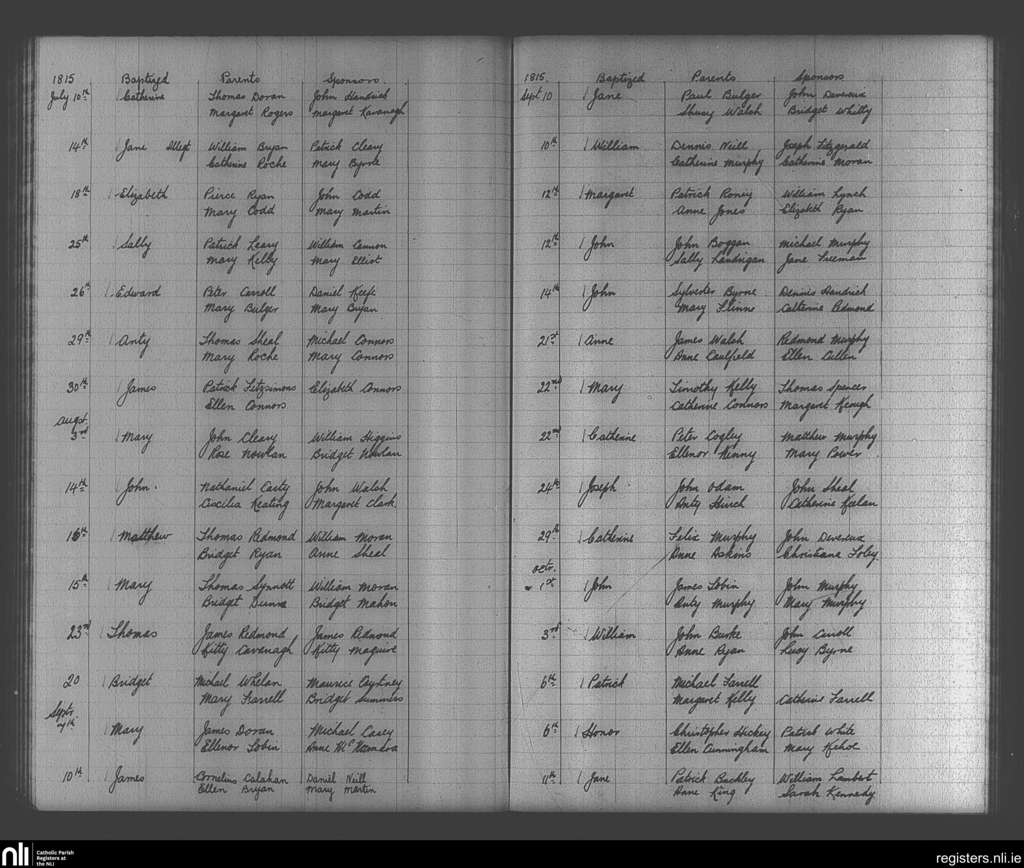 1815 Baptized Parents Sponsors
July 10th Catherine Thomas Doran John Handrick
Margaret Rogers Margaret Kavanagh
14th Jane Illegt William Bryan Patrick Cleary
Catherine Roche Mary Byrne
18th Elizabeth Pierce Ryan John Codd
Mary Codd Mary Martin
25th Sally Patrick Leary William Cannon
Mary Kelly Mary Elliot
26th Edward Peter Carroll Daniel Keefe
Mary Bulger Mary Bryan
29th Anty Thomas Sheal Michael Connors
Mary Roche Mary Connors
30th James Patrick Fitzsimons Elizabeth Connors
Ellen Connors
Augst.
3rd Mary John Cleary William Higgins
Rose Nowlan Bridget Nowlan
14th John. Nathaniel Casty John Walsh
Ciscilia Keating Margaret Clark
Matthew Thomas Redmond William Moran
Bridget Ryan Anne Sheal
15th Mary Thomas Synnott William Moran
Bridget Dunne Bridget Mahon
23rd Thomas James Redmond James Redmond
Kitty Cavanagh Kitty Maguire
20 Bridget Michael Whelan Maurice
Mary Farrell Bridget Summers
Septr.
7th. Mary James Doran Michael Casey
Ellenor Tobin Anne
10th James Cornelius Calahan Daniel Neill
Ellen Bryan Mary Martin
1815. Baptized Parents Sponsors
Sept 10 Jane Paul Bulger John Devereux
Walsh Bridget Whitty
10th William Dennis Neill Joseph Fitzgerald
Catherine Murphy Catherine Moran
12th Margaret Patrick Roney William Lynch
Anne Jones Elizabeth Ryan
12th John John Boggan Michael Murphy
Sally Landrigan Jane Freeman
14th John Sylvester Byrne Dennis Handrick
Mary Catherine Redmond
21st Anne James Walsh Redmond Murphy
Anne Caulfield Ellen Cullin
22nd Mary Timothy Kelly Thomas Spencer
Catherine Connors Margaret Keough
22nd Catherine Peter Cogley Matthew Murphy
Ellenor Kenny Mary Power
24th Joseph John Odam John Sheal
Anty Catherine Kealan
29th Catherine Felix Murphy John Devereux
Anne Askins Christiana Foley
Octr.
1st John James Tobin John Murphy
Anty Murphy Mary Murphy
3rd William John Burke John Carroll
Anne Ryan Lucy Byrne
6th Patrick Michael Farrell
Margaret Kelly Catherine Farrell
6th Honor Christopher Hickey Patrick White
Ellen Cunningham Mary Kehoe
11th Jane Patrick Buckley William Lambert
Anne King Sarah Kennedy
nli Catholic Parish
Registers at
the NLI
registers.nli.ie